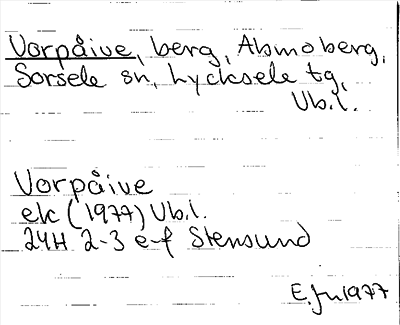 Vorpåive, berg, Abmoberg,
Sorsele sn, Lycksele tg,
Vb.l.
Vorpåive
ek (1977) Vb.l.
24H 2-3 e-f Stensund
1977